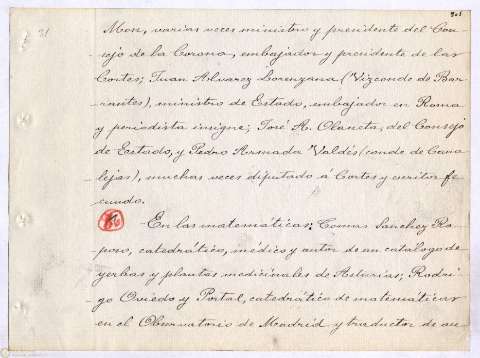 Mon, varias veces ministro y presidente del Con-
sejo de la Corona, embajador y presidente de las
Cortes; Juan Alvarez Lorenzana (Vizconde de Bar-
rantes), ministro de Estado, embajador en Roma
y periodista insigne; José A. Olaneta, del Consejo
de Estado, y Pedro Armada Valdés (conde de Cana-
lejas), muchas veces diputado á Cortes y escritor fe
cundo.
En las matemáticas: Tomas Sanchez Ra-
poso, catedrático, médico y autor de un catálogo de
yerbas y plantas medicinales de Asturias; Rodri-
go Oviedo y Portal, catedrático de matemáticas
en el Observatorio de Madrid y traductor de au-